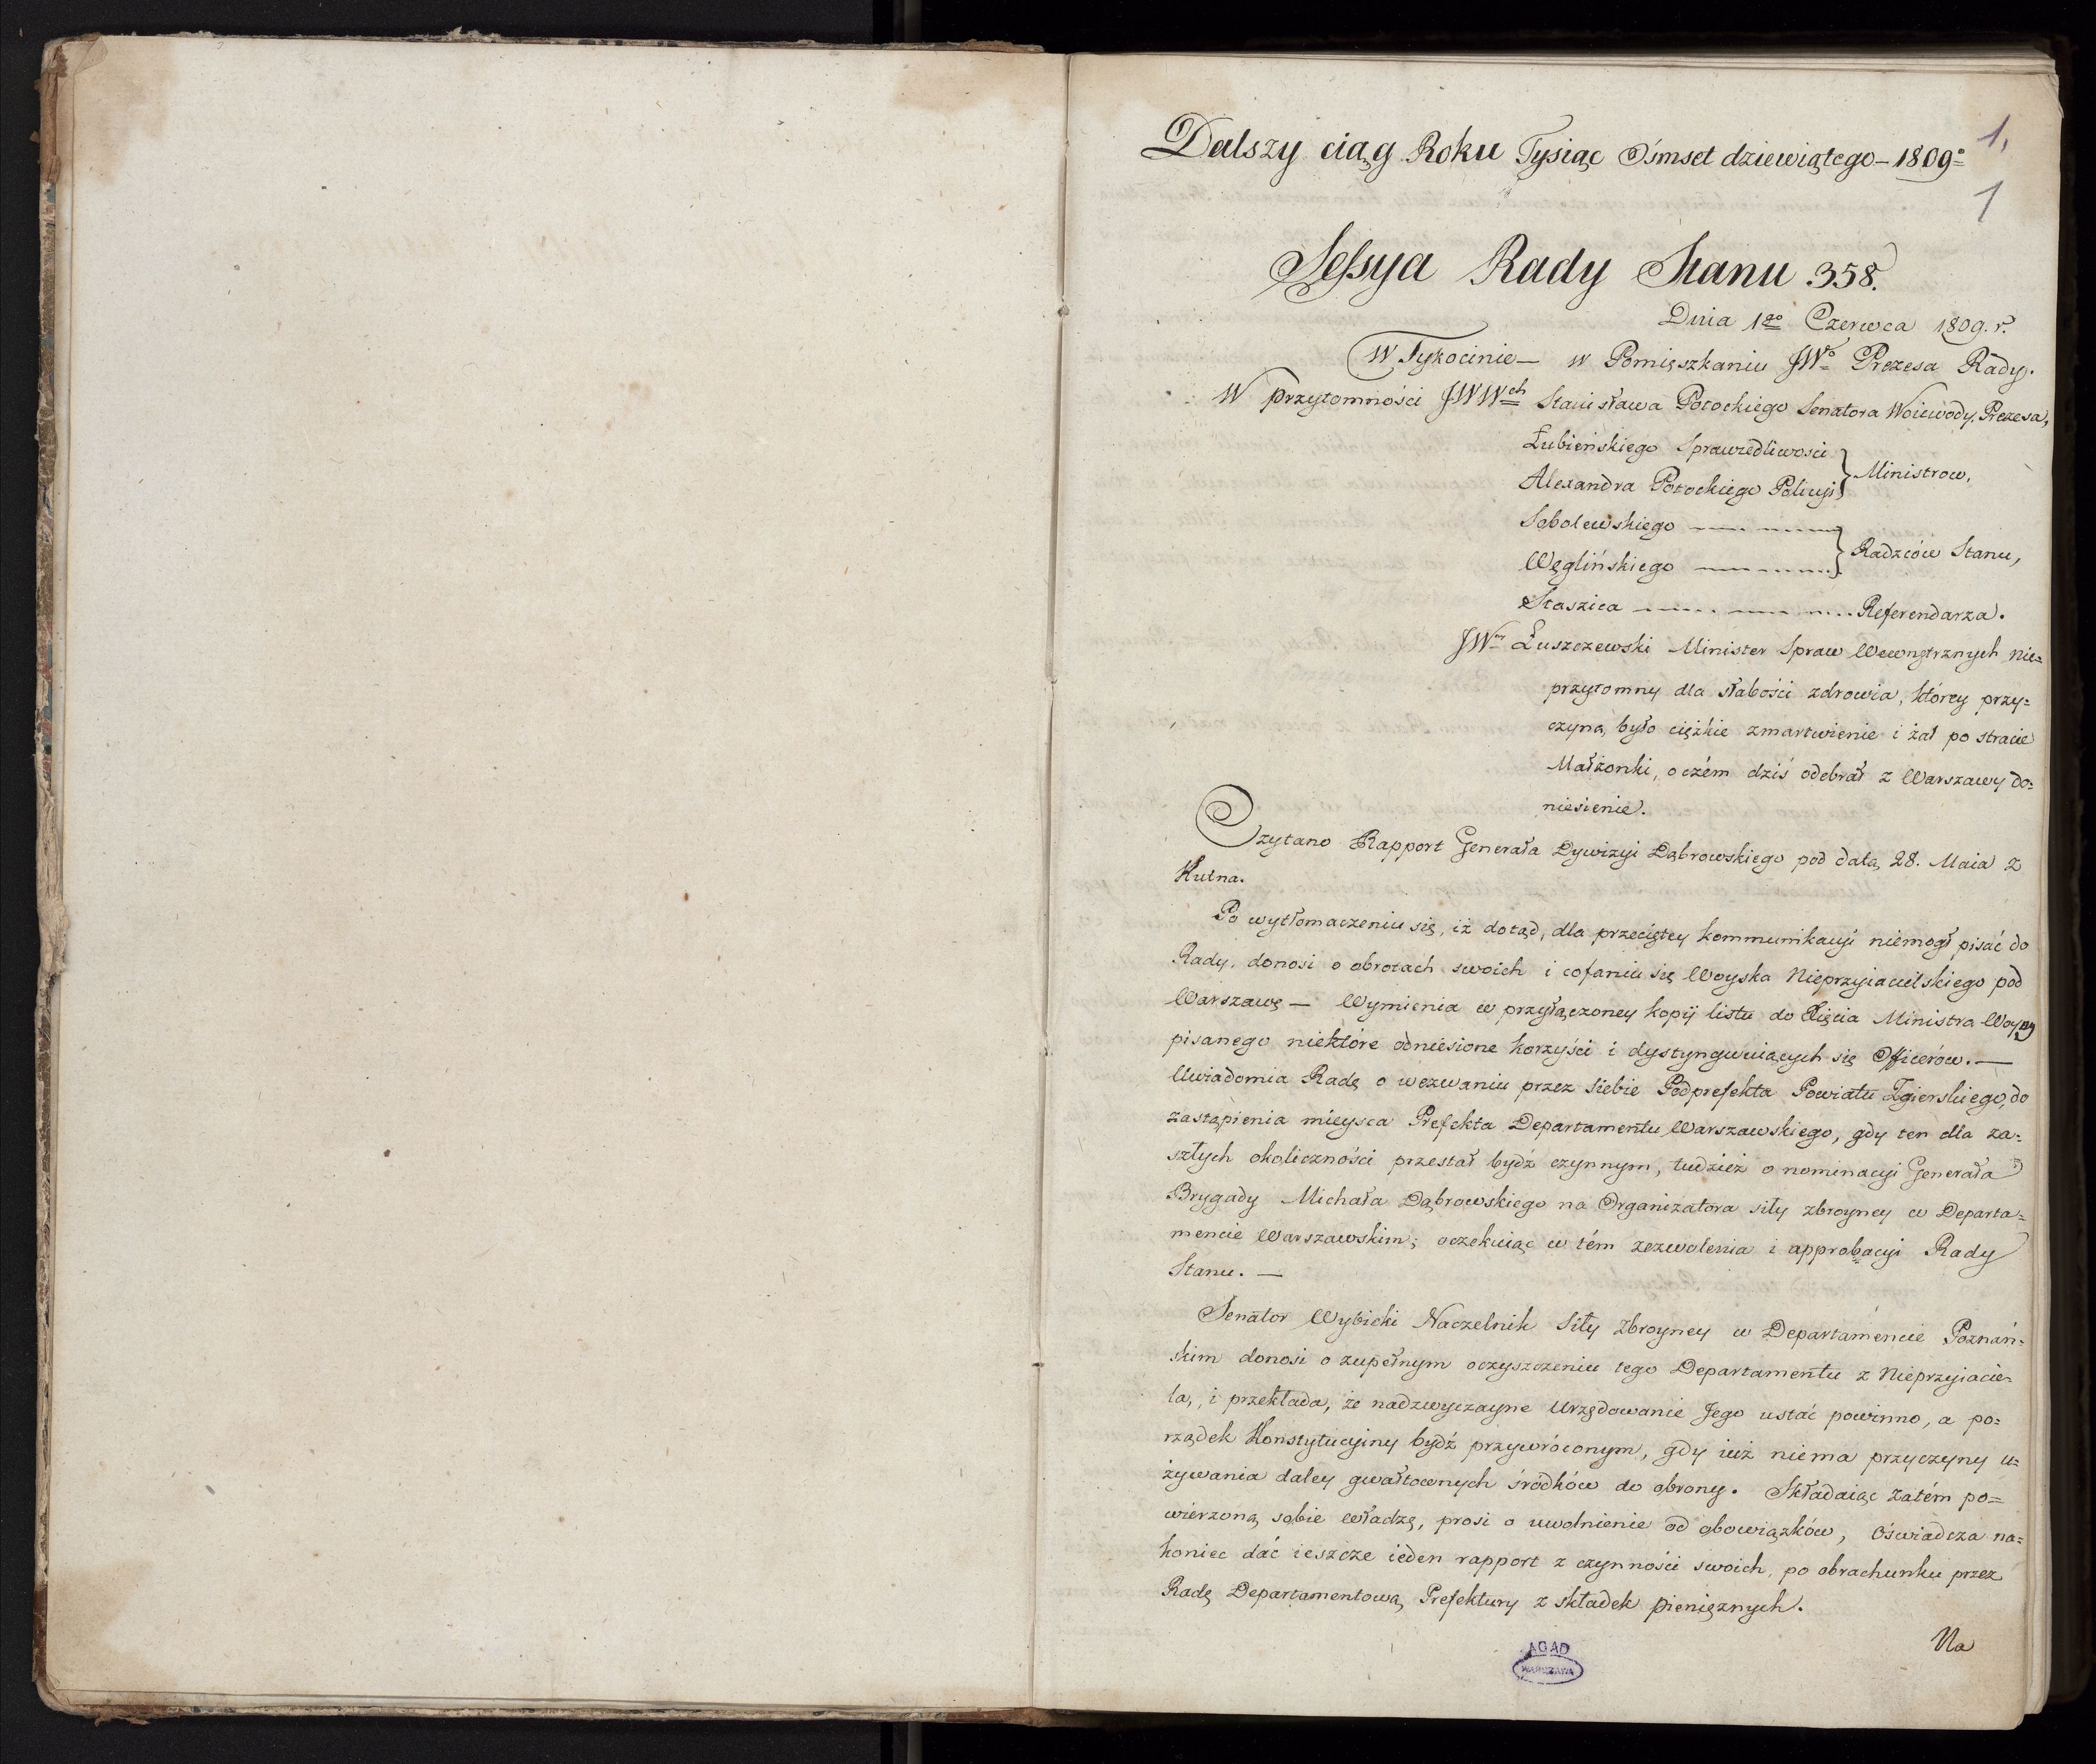 Dalszy ciąg Roku Tysiąc Ośmset dziewiątego – 1809º
1,
1
Sessya Rady Stanu 358.
Dnia 1go Czerwca 1809. r.
W Tykocinie — w Pomięszkaniu JWo Prezesa Rady.
W przytomności JWWch Stanisława Potockiego Senatora Woiewody, Prezesa,
Łubieńskiego Sprawiedliwości
Alexandra Potockiego Policyi } Ministrow,
Sobolewskiego
Węglińskiego } Radzców Stanu,
Staszica Referendarza.
JWny Łuszczewski Minister Spraw Wewnętrznych nie=
przytomny dla słabości zdrowia, którey przy=
czyną, było ciężkie zmartwienie i żal po stracie
Małżonki, o czém dziś odebrał z Warszawy do=
niesienie.
Czytano Rapport Generała Dywizyi Dąbrowskiego pod datą 28. Maia z
Kutna.
Po wytłomaczeniu się, iż dotąd, dla przeciętey kommunikacyi niemogł pisać do
Rady, donosi o obrotach swoich i cofaniu się Woyska Nieprzyiacielskiego pod
Warszawę — Wymienia w przyłączoney kopij listu do Xięcia Ministra Woyny
pisanego niektóre odniesione korzyści i dystyngwuiących się Officerów. —
Uwiadomia Radę o wezwaniu przez siebie Podprefekta Powiatu Zgierskiego, do
zastąpienia mieysca Prefekta Departamentu Warszawskiego, gdy ten dla za=
szłych okoliczności przestał bydź czynnym, tudzież o nominacyi Generała
Brygady Michała Dąbrowskiego na Organizatora siły zbroyney w Departa=
mencie Warszawskim; oczekuiąc w tém zezwolenia i approbacyi Rady
Stanu. —
Senator Wybicki Naczelnik Siły Zbroyney w Departamencie Poznań=
skim donosi o zupełnym oczyszczeniu tego Departamentu z Nieprzyiacie=
la, i przekłada, że nadzwyczayne Urzędowanie Jego ustać powinno, a po=
rządek Konstytucyiny bydź przywróconym, gdy iuż niema przyczyny u=
żywania daley gwałtownych środków do obrony. Składaiąc zatém po=
wierzoną sobie władzę, prosi o uwolnienie od obowiązków, Oświadcza na=
koniec dać ieszcze ieden rapport z czynności swoich, po obrachunku przez
Radę Departamentową Prefektury z składek pieniężnych.
Na
AGAD
WARSZAWA